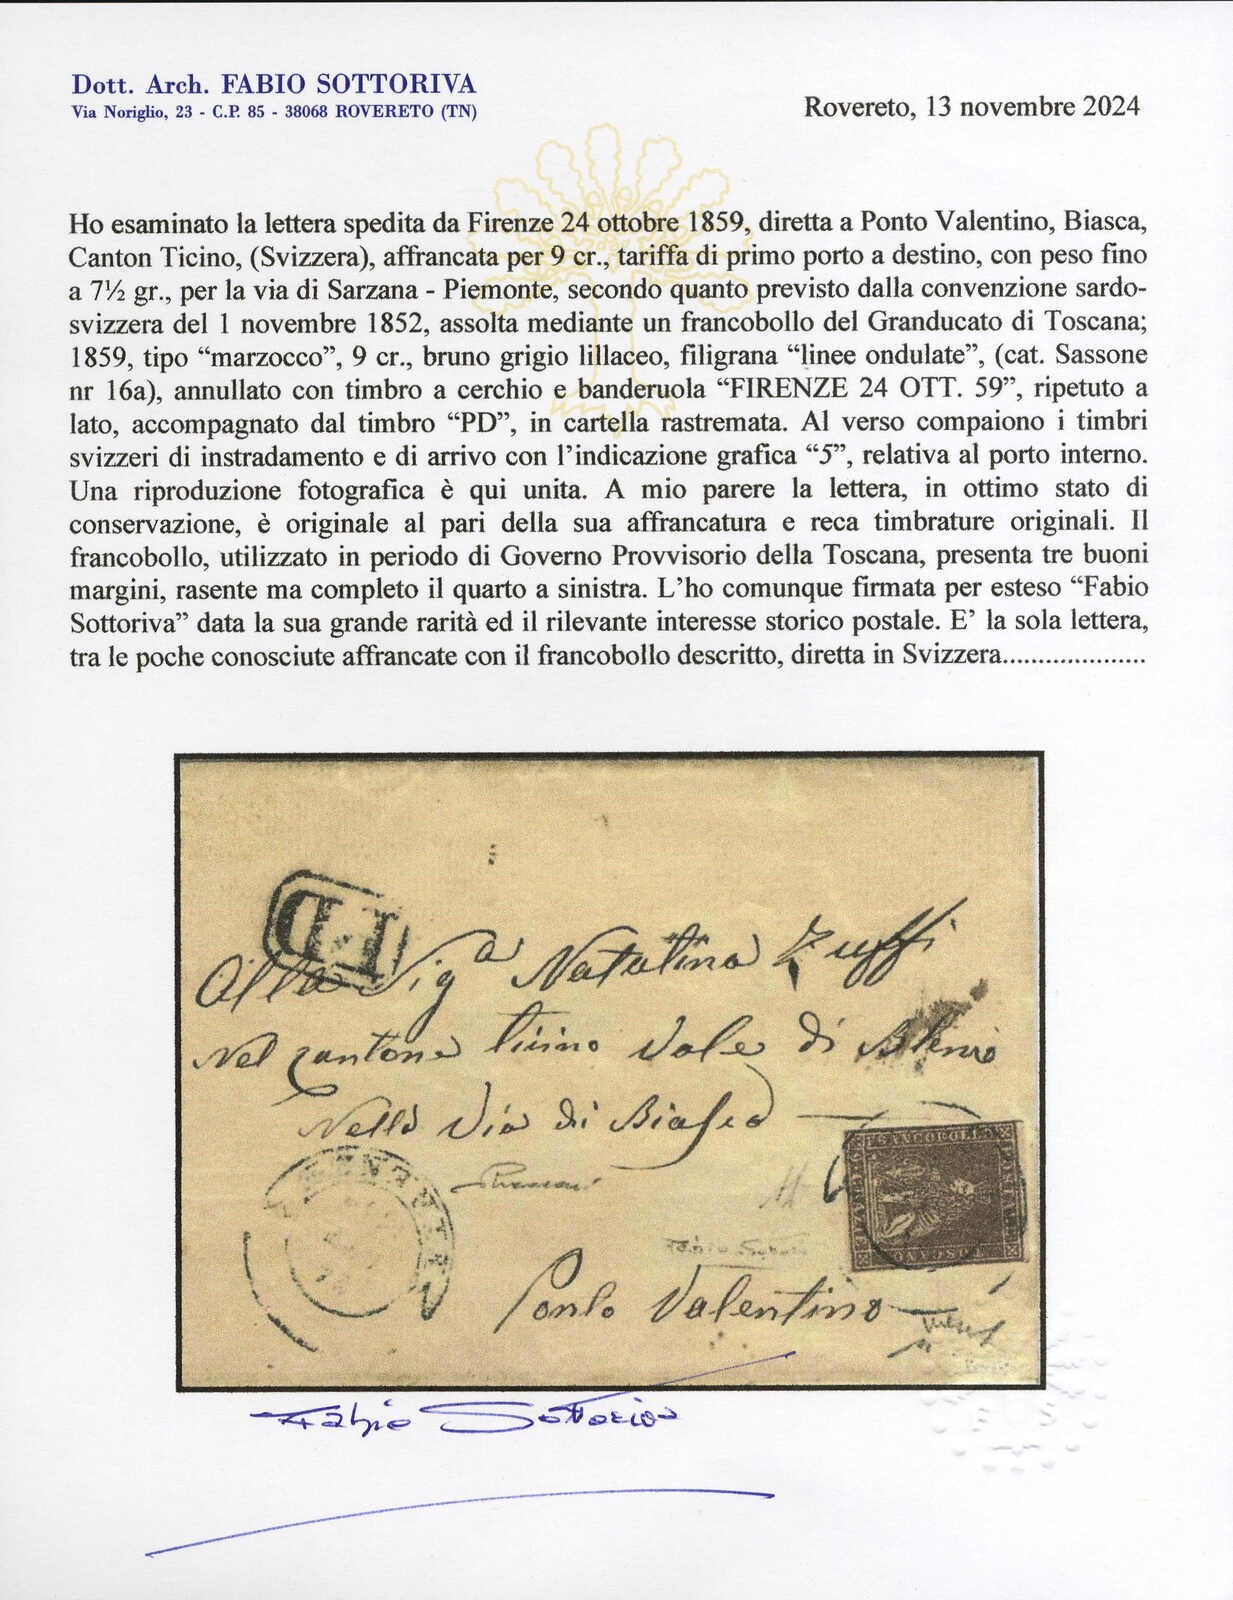 Dott. Arch. FABIO SOTTORIVA
Via Noriglio, 23 - C.P. 85 - 38068 ROVERETO (TN)
Rovereto, 13 novembre 2024
Ho esaminato la lettera spedita da Firenze 24 ottobre 1859, diretta a Ponto Valentino, Biasca,
Canton Ticino, (Svizzera), affrancata per 9 cr., tariffa di primo porto a destino, con peso fino
a 7½ gr., per la via di Sarzana - Piemonte, secondo quanto previsto dalla convenzione sardo-
svizzera del 1 novembre 1852, assolta mediante un francobollo del Granducato di Toscana;
1859, tipo “marzocco”, 9 cr., bruno grigio lillaceo, filigrana “linee ondulate”, (cat. Sassone
nr 16a), annullato con timbro a cerchio e banderuola “FIRENZE 24 OTT. 59”, ripetuto a
lato, accompagnato dal timbro “PD”, in cartella rastremata. Al verso compaiono i timbri
svizzeri di instradamento e di arrivo con l’indicazione grafica “5”, relativa al porto interno.
Una riproduzione fotografica è qui unita. A mio parere la lettera, in ottimo stato di
conservazione, è originale al pari della sua affrancatura e reca timbrature originali. Il
francobollo, utilizzato in periodo di Governo Provvisorio della Toscana, presenta tre buoni
margini, rasente ma completo il quarto a sinistra. L’ho comunque firmata per esteso “Fabio
Sottoriva” data la sua grande rarità ed il rilevante interesse storico postale. E’ la sola lettera,
tra le poche conosciute affrancate con il francobollo descritto, diretta in Svizzera....................
PD
Alla Sigª Natalina Zuffi
Nel Cantone Ticino Vale di Blenio
Nella Via di Biasca
FRANCOBOLLO POSTALE TOSCANO
Fabio Sottoriva
Ponto Valentino
Fabio Sottoriva